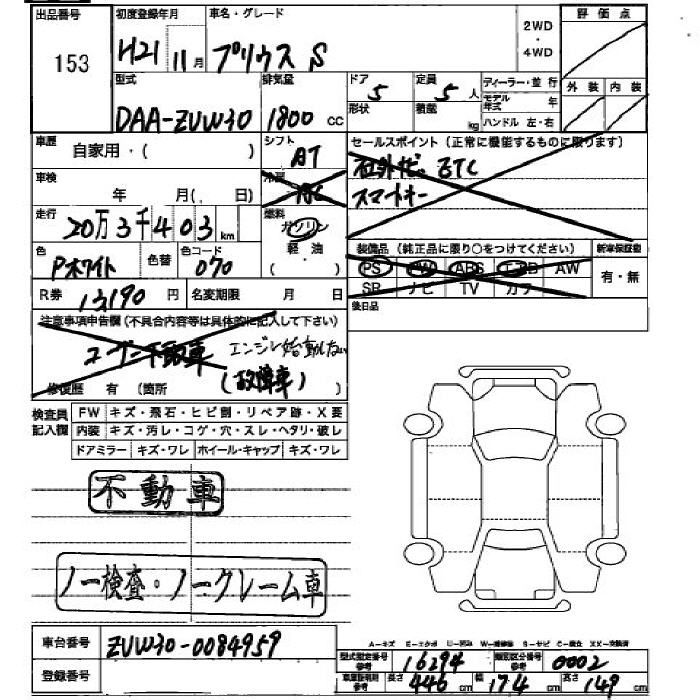 出品番号 153
初度登録年月 H21 11月
車名・グレード プリウス S
2WD・4WD
評価点
外装 内装
型式 DAA-ZVW30
排気量 1800 cc
ドア 5
形状
定員 5 人
積載 kg
ディーラー・並行
モデル年式 年
ハンドル 左・右
車歴 自家用・( )
シフト AT
セールスポイント(正常に機能するものに限ります)
社外ナビ。ETC
スマートキー
車検 年 月( 日)
冷房 AC
走行 20万3千403km
燃料 ガソリン 軽油 ・( )
色 Pホワイト
色替
色コード 070
装備品(純正品に限り○をつけてください)
新車保証書
PS PW ABS エアB AW
SR ナビ TV カワ
有・無
R券 13,190円
名変期限 月 日
後日品
注意事項申告欄(不具合内容等は具体的に記入して下さい)
ユーザー不動車 エンジン始動しない
(故障車)
修復歴 有(箇所 )
検査員記入欄
FW キズ・飛石・ヒビ割・リペア跡・X要
内装 キズ・汚レ・コゲ・穴・スレ・ヘタリ・破レ
ドアミラー キズ・ワレ ホイール・キャップ キズ・ワレ
不動車
ノー検査・ノークレーム車
A-キズ E-エクボ U-凹み W-補修跡 S-サビ C-腐食 XX-交換済
車台番号 ZVW30-0084959
登録番号
型式指定番号 参考 16294
類別区分番号 参考 0002
車庫証明用 参考 長さ 446 cm 幅 174 cm 高さ 149 cm